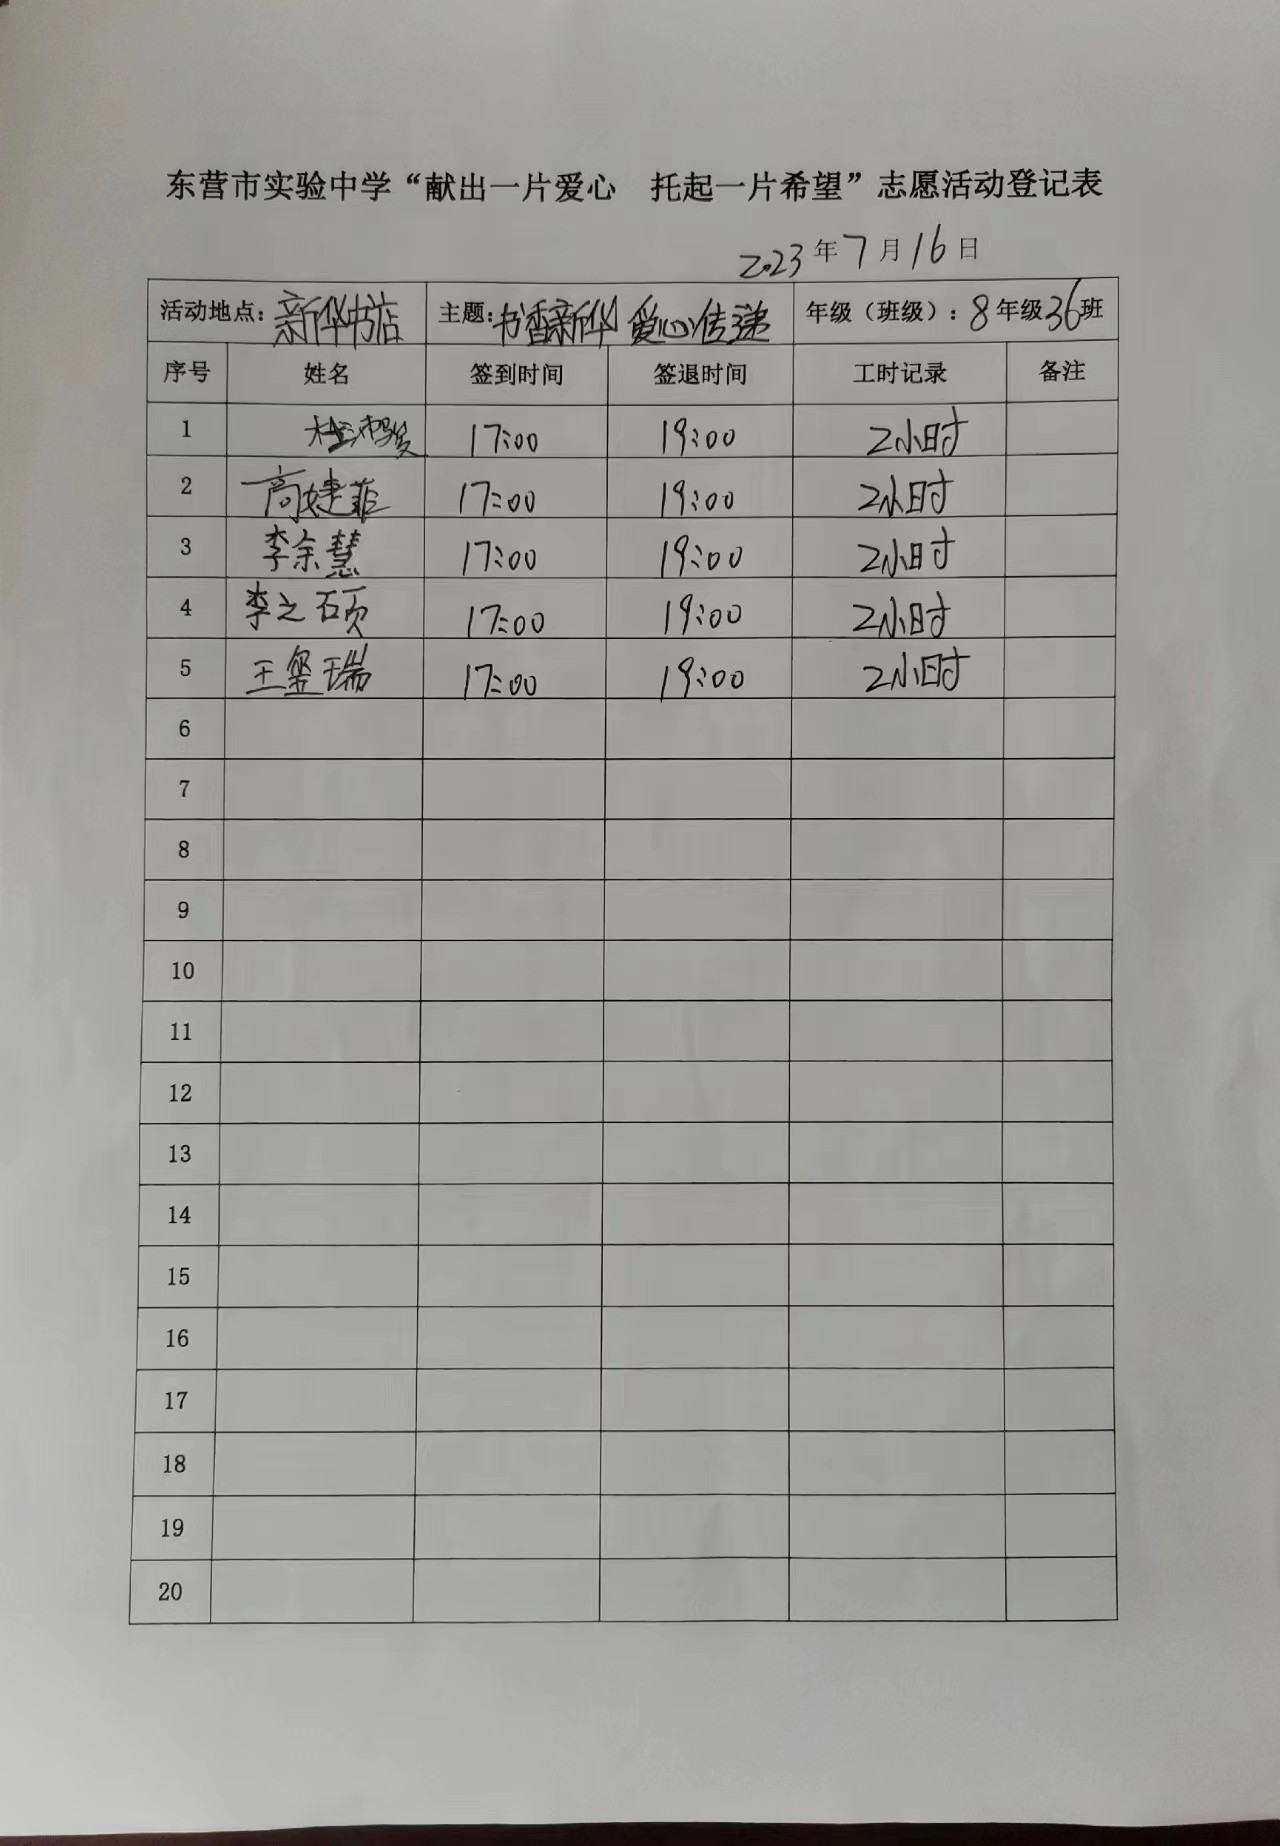 东营市实验中学“献出一片爱心 托起一片希望”志愿活动登记表
2023年7月16日
活动地点：新华书店 主题：书香新华 爱心传递 年级（班级）：8年级36班
序号 姓名 签到时间 签退时间 工时记录 备注
1 17:00 19:00 2小时
2 高婕菲 17:00 19:00 2小时
3 李余慧 17:00 19:00 2小时
4 李之硕 17:00 19:00 2小时
5 王玺瑞 17:00 19:00 2小时
6
7
8
9
10
11
12
13
14
15
16
17
18
19
20